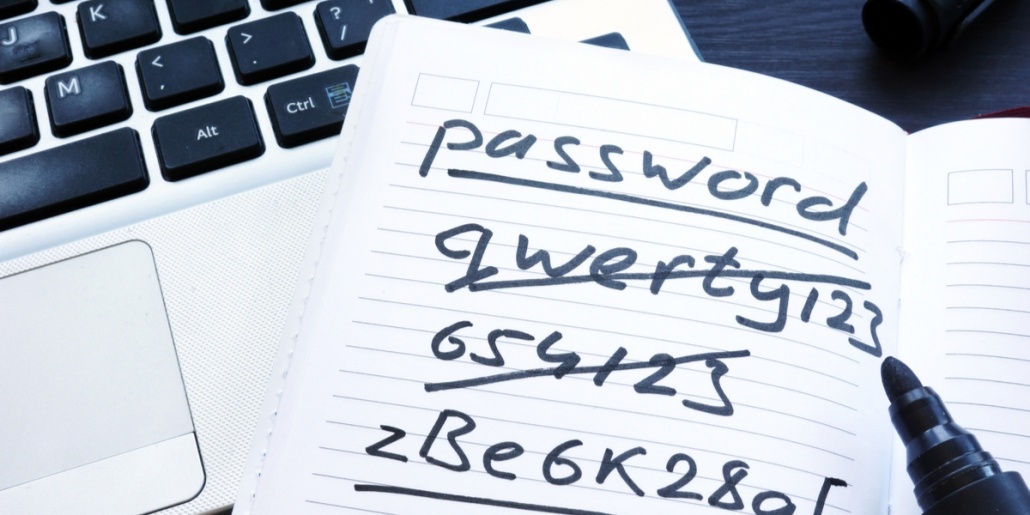 J K > . ? /
M < ,
Alt Ctrl
password
qwerty123
654123
zBe6K28a